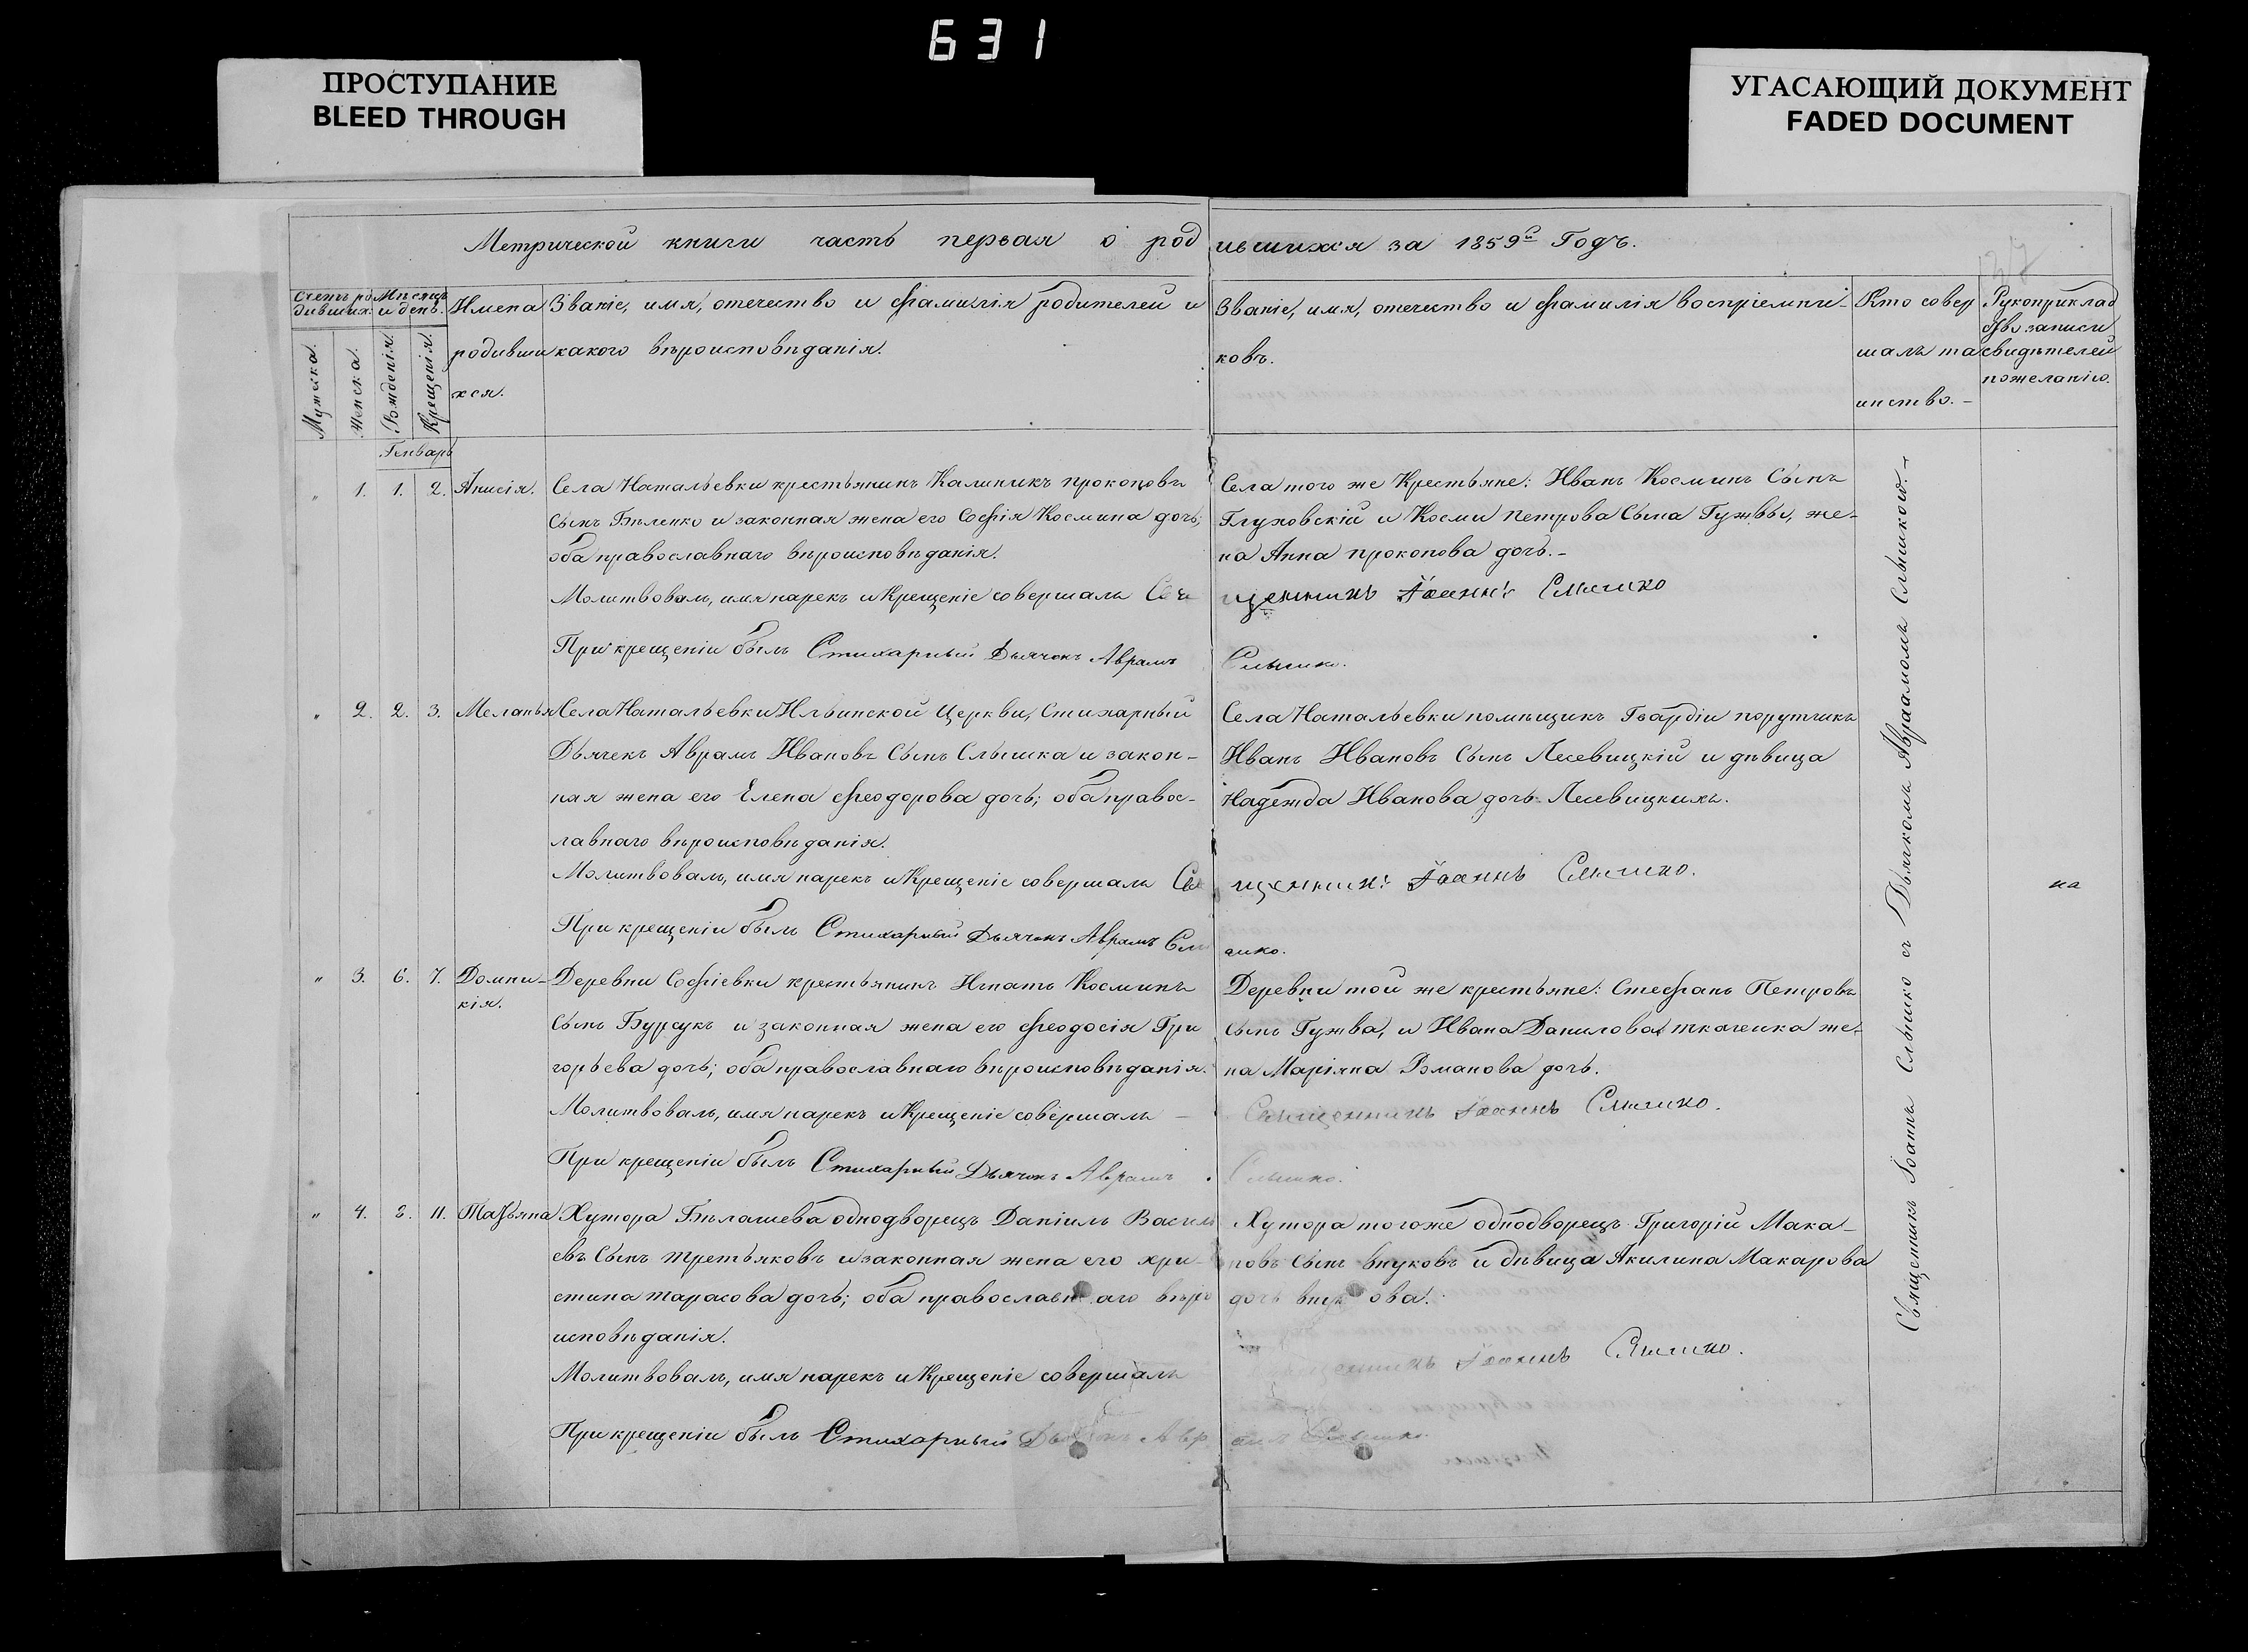 631
ПРОСТУПАНИЕ
BLEED THROUGH
УГАСАЮЩИЙ ДОКУМЕНТ
FADED DOCUMENT
Метрической книги часть первая о родившихся за 1859й Годъ.
Счетъ родивших.
Мѣсяцъ и день.
Имена родившихся.
Званіе, имя, отечество и фамилія родителей и какого вѣроисповѣданія.
Званіе, имя, отечество и фамилія воспріемниковъ.
Кто совершалъ таинство.-
Рукоприкладство записи свидѣтелей пожеланію.
Мужеска.
Женска.
Рожденія.
Крещенія.
Генварь
" 1. 1. 2. Анисія.
Села Натальевки крестьянинъ Калиникъ прокоповъ
Сынъ Бѣленко и законная жена его Софія Космина дочь;
оба православнаго вѣроисповѣданія.
Молитвовалъ, имя нарекъ и Крещеніе совершалъ Священникъ Іоаннъ Слышко
При крещеніи былъ Стихарный Дьячокъ Аврамъ Слышко.
Села того же Крестьяне: Иванъ Косминъ Сынъ
Глуховскій и Косми петрова Сына Гужвы, же-
на Анна прокопова дочь.-
" 2. 2. 3. Меланья
Села Натальевки Ильинской Церкви, Стихарный
Дьячекъ Аврамъ Ивановъ Сынъ Слышка и закон-
ная жена его Елена Феодорова дочь; оба правос-
лавнаго вѣроисповѣданія.
Молитвовалъ, имя нарекъ и Крещеніе совершалъ Священникъ Іоаннъ Слышко.
При крещеніи былъ Стихарный Дьячокъ Аврамъ Слышко.
Села Натальевки помѣщикъ Гвардіи порутчикъ
Иванъ Ивановъ Сынъ Лесевицкій и дѣвица
Надежда Иванова дочь Лесевицкихъ.
" 3. 6. 7. Домникія.
Деревни Софіевки крестьянинъ Игнатъ Косминъ
Сынъ Бурсукъ и законная жена его Феодосія Гри
горьева дочь; оба православнаго вѣроисповѣданія.
Молитвовалъ, имя нарекъ и Крещеніе совершалъ - Священникъ Іоаннъ Слышко.
При крещеніи былъ Стихарный Дьячокъ Аврамъ Слышко.
Деревни той же крестьяне: Стефанъ Петровъ
Сынъ Гужва, и Ивана Данилова ткаченка же-
на Маріяна Романова дочь.
" 4. 8. 11. Татьяна
Хутора Бѣлашева однодворецъ Даніилъ Василь
евъ Сынъ третьяковъ и законная жена его хри-
стина тарасова дочь; оба православнаго вѣро
исповѣданія.
Молитвовалъ, имя нарекъ и Крещеніе совершалъ Священникъ Іоаннъ Слышко.
При крещеніи былъ Стихарный Дьячокъ Аврамъ Слышко.
Хутора тогоже однодворецъ Григорій Мака-
ровъ Сынъ внуковъ и дѣвица Акилина Макарова
дочь внукова.
Священникъ Іоаннъ Слышко съ Дьячкомъ Авраамомъ Слышкою.-
на